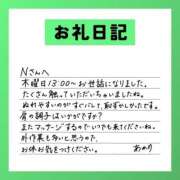 お礼日記
Nさんへ
木曜日13:00〜お世話になりました。
たくさん触っていただいちゃいましたね。
ぬれやすいのがすごバレて、恥ずかしかったです。
肩の調子はいかがですか?
またマッサージするのでいつでも来てくださいね。
外作業も多いと思うので、
お体お気をつけください。
あめり